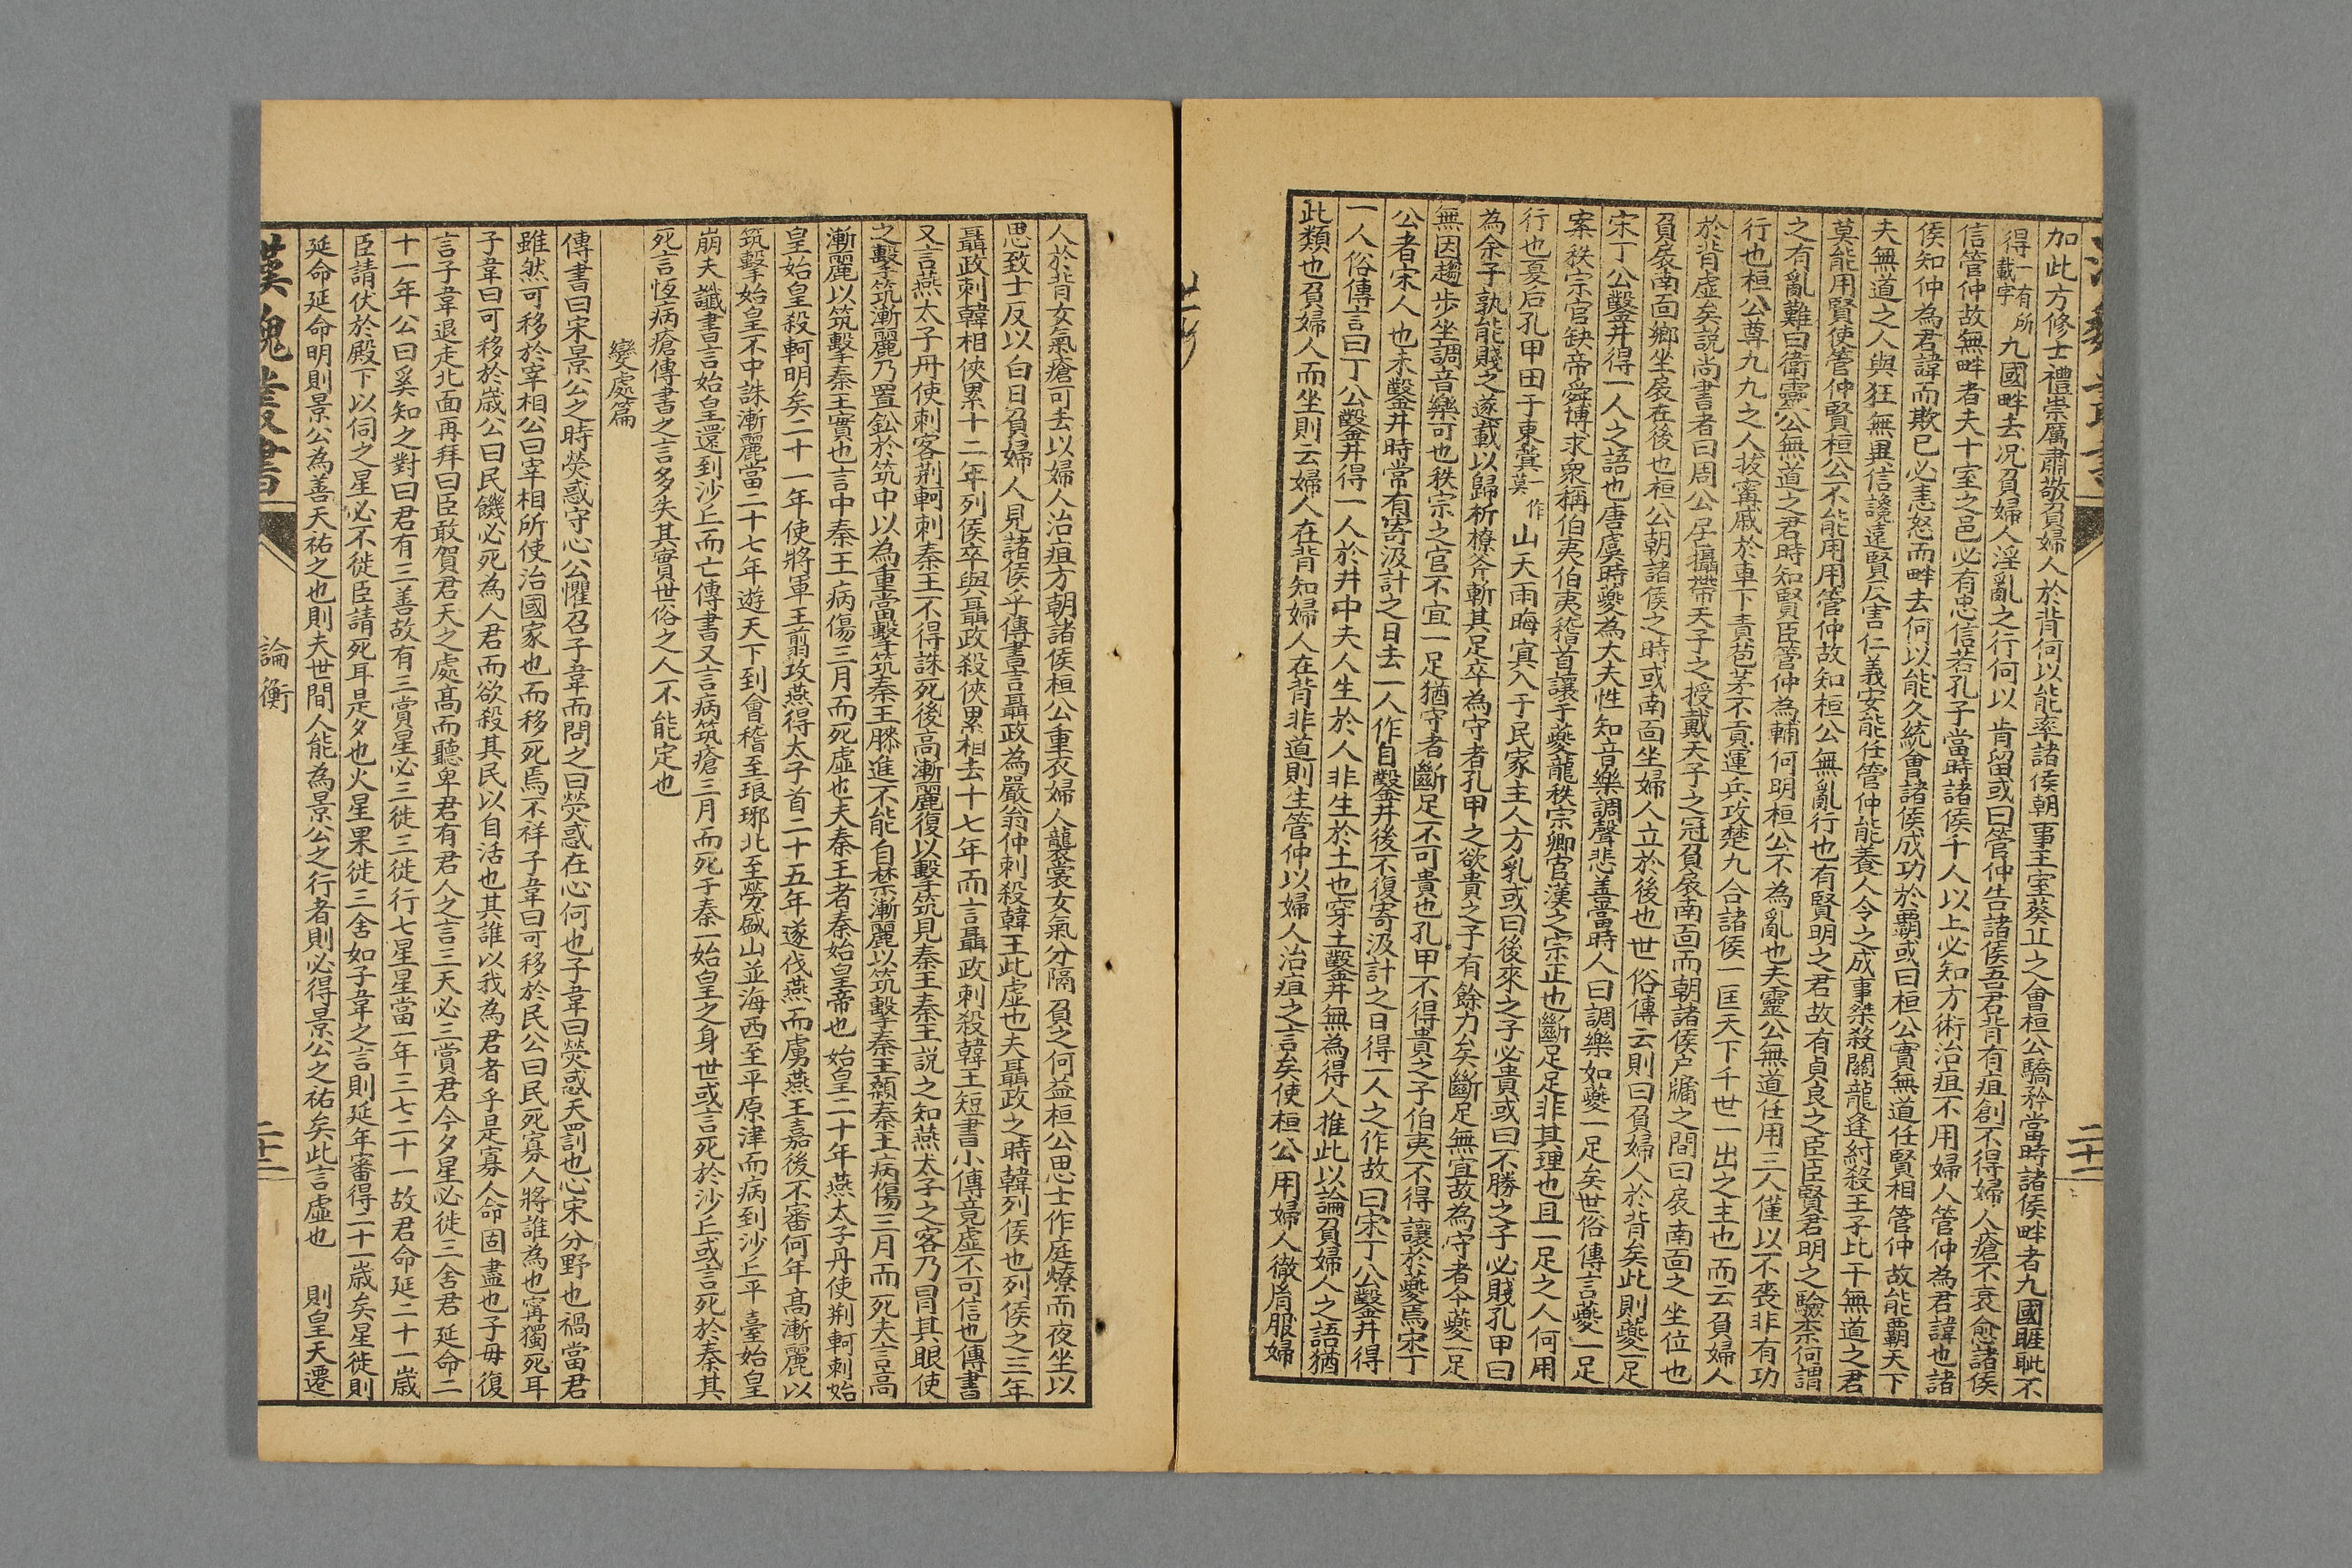 加此方修士禮崇厲肅敬負婦人於背何以能率諸侯朝事王室葵丘之會桓公驕矜當時諸侯畔者九國睚眦不
得一有載字所九國畔去况負婦人淫亂之行何以肯留或曰管仲告諸侯吾君背有疽創不得婦人瘡不衰愈諸侯
信管仲故無畔者夫十室之邑必有忠信若孔子當時諸侯千人以上必知方術治疽不用婦人管仲為君諱也諸
侯知仲為君諱而欺已必恚怒而畔去何以能久統會諸侯成功於霸或曰桓公實無道任賢相管仲故能霸天下
夫無道之人與狂無異信讒遠賢反害仁義安能任管仲能養人令之成事桀殺關龍逄紂殺王子比干無道之君
莫能用賢使管仲賢桓公不能用用管仲故知桓公無亂行也有賢明之君故有貞良之臣臣賢君明之驗柰何謂
之有亂難曰衛靈公無道之君時知賢臣管仲為輔何明桓公不為亂也夫靈公無道任用三人僅以不喪非有功
行也桓公尊九九之人拔甯戚於車下責苞茅不貢運兵攻楚九合諸侯一匡天下千世一出之主也而云負婦人
於背虚矣説尚書者曰周公居攝帶天子之授戴天子之冠負扆南面而朝諸侯戸牖之間曰扆南面之坐位也
負扆南面鄉坐扆在後也桓公朝諸侯之時或南面坐婦人立於後也世俗傳云則曰負婦人於背矣此則夔一足
宋丁公鑿井得一人之語也唐虞時夔為大夫性知音樂調聲悲善當時人曰調樂如夔一足矣世俗傳言夔一足
案秩宗官缺帝舜博求衆稱伯夷伯夷稽首讓于夔龍秩宗卿官漢之宗正也斷足足非其理也且一足之人何用
行也夏后孔甲田于東蓂一作莫山天雨晦㝠入于民家主人方乳或曰後來之子必貴或曰不勝之子必賤孔甲曰
為余子孰能賤之遂載以歸析橑斧斬其足卒為守者孔甲之欲貴之子有餘力矣斷足無宜故為守者今夔一足
無因趨步坐調音樂可也秩宗之官不宜一足猶守者斷足不可貴也孔甲不得貴之子伯夷不得讓於夔焉宋丁
公者宋人也未鑿井時常有寄汲計之日去一人作自鑿井後不復寄汲計之日得一人之作故曰宋丁公鑿井得
一人俗傳言曰丁公鑿井得一人於井中夫人生於人非生於土也穿土鑿井無為得人推此以論負婦人之語猶
此類也負婦人而坐則云婦人在背知婦人在背非道則生管仲以婦人治疽之言矣使桓公用婦人徹胷服婦
二十二
人於背女氣瘡可去以婦人治疽方朝諸侯桓公重衣婦人襲裳女氣分隔負之何益桓公思士作庭燎而夜坐以
思致士反以白日負婦人見諸侯乎傳書言聶政為嚴翁仲刺殺韓王此虚也夫聶政之時韓列侯也列侯之三年
聶政刺韓相俠累十二年列侯卒與聶政殺俠累相去十七年而言聶政刺殺韓王短書小傳竟虚不可信也傳書
又言燕太子丹使刺客荊軻刺秦王不得誅死後高漸麗復以擊筑見秦王秦王説之知燕太子之客乃冐其眼使
之擊筑漸麗乃置鈆於筑中以為重當擊筑秦王膝進不能自禁漸麗以筑擊秦王顙秦王病傷三月而死夫言高
漸麗以筑擊秦王實也言中秦王病傷三月而死虚也夫秦王者秦始皇帝也始皇二十年燕太子丹使荆軻刺始
皇始皇殺軻明矣二十一年使將軍王翦攻燕得太子首二十五年遂伐燕而虜燕王嘉後不審何年高漸麗以
筑擊始皇不中誅漸麗當二十七年遊天下到會稽至琅琊北至勞盛山並海西至平原津而病到沙丘平臺始皇
崩夫讖書言始皇還到沙丘而亡傳書又言病筑瘡三月而死于秦一始皇之身世或言死於沙丘或言死於秦其
死言恆病瘡傳書之言多失其實世俗之人不能定也
變處篇
傳書曰宋景公之時熒惑守心公懼召子韋而問之曰熒惑在心何也子韋曰熒惑天罰也心宋分野也禍當君
雖然可移於宰相公曰宰相所使治國家也而移死焉不祥子韋曰可移於民公曰民死寡人將誰為也寗獨死耳
子韋曰可移於歲公曰民饑必死為人君而欲殺其民以自活也其誰以我為君者乎是寡人命固盡也子毋復
言子韋退走北面再拜曰臣敢賀君天之處髙而聽卑君有君人之言三天必三賞君今夕星必徙三舍君延命二
十一年公曰奚知之對曰君有三善故有三賞星必三徙三徙行七星星當一年三七二十一故君命延二十一歲
臣請伏於殿下以伺之星必不徙臣請死耳是夕也火星果徙三舍如子韋之言則延年審得二十一歲矣星徙則
延命延命明則景公為善天祐之也則夫世間人能為景公之行者則必得景公之祐矣此言虚也則皇天遷
漢魏叢書
論衡